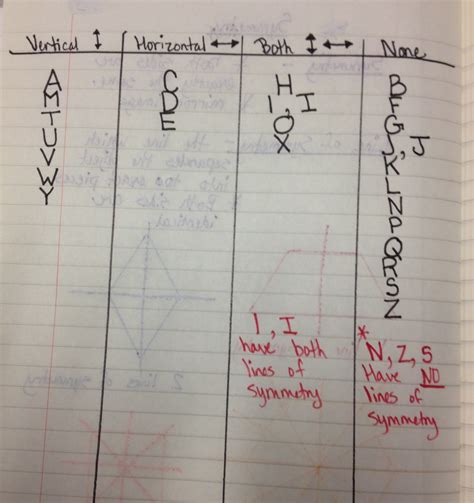 Vertical ↕
Horizontal ↔
Both ↕ ↔
None
A
M
T
U
V
W
Y
C
D
E
H
I, I
O
X
B
F
G, J
K
L
N
P
Q
R
S
Z
I, I
have both
lines of
symmetry
*
N, Z, S
Have NO
lines of
symmetry